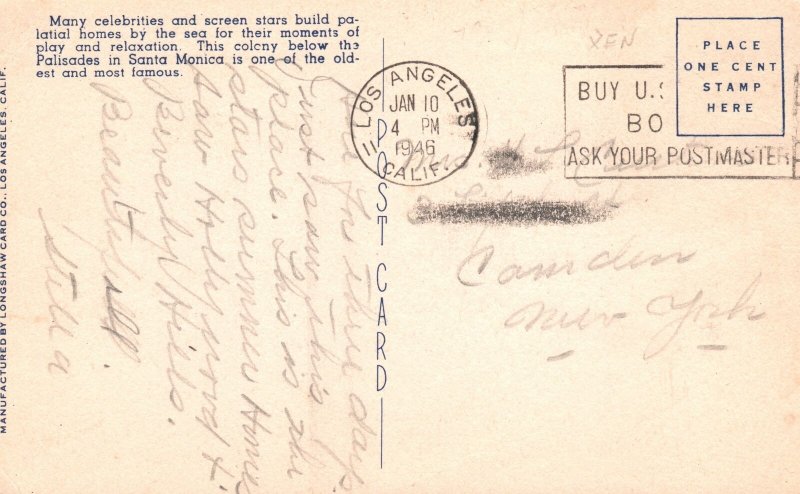 Many celebrities and screen stars build pa-
latial homes by the sea for their moments of
play and relaxation. This colony below the
Palisades in Santa Monica is one of the old-
est and most famous.
MANUFACTURED BY LONGSHAW CARD CO., LOS ANGELES, CALIF.
POST CARD
LOS ANGELES
JAN 10
4 PM
1946
11
CALIF.
BUY U.S
BO
ASK YOUR POSTMASTER
PLACE
ONE CENT
STAMP
HERE
XEN
Mrs.
Camden
New York
in three days.
Just saw this
place. This is the
stars summer Home
Saw Hollywood &
Beverly Hills.
Beautiful.
Stella